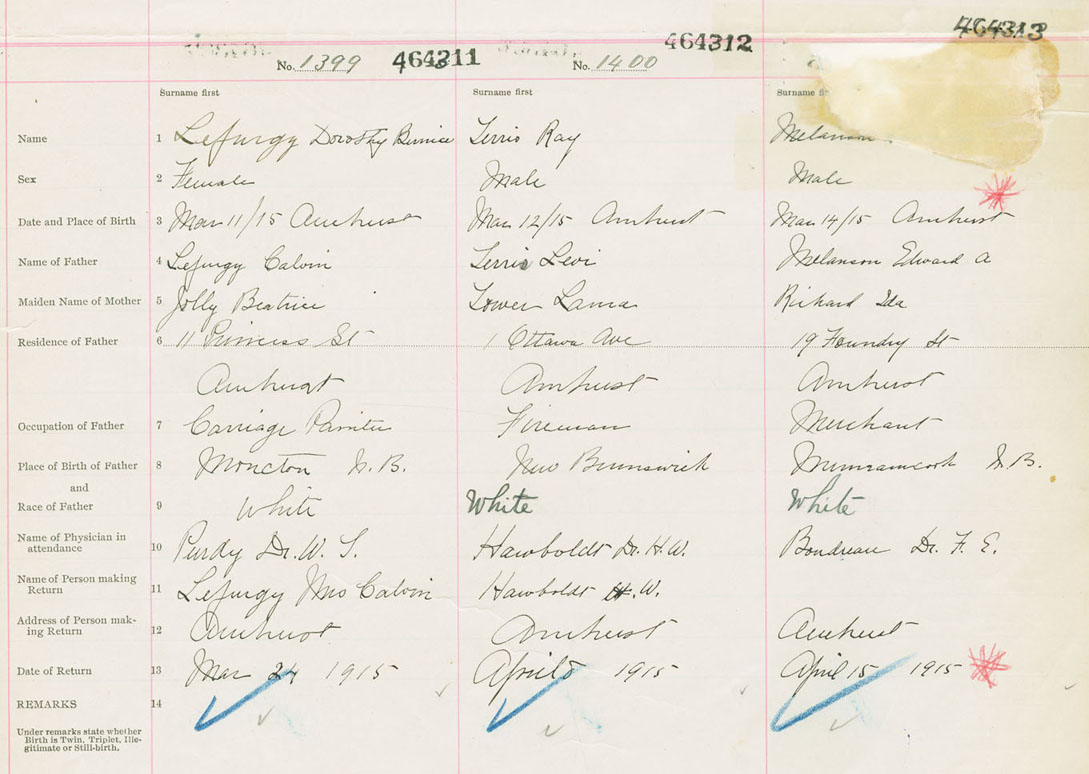 464313
No. 1399 464311 No. 1400 464312
Surname first Surname first Surname fi
Name 1 Lefurgy Dorothy Bernice Terris Ray Melanson
Sex 2 Female Male Male
Date and Place of Birth 3 Mar 11/15 Amherst Mar 12/15 Amherst Mar 14/15 Amherst
Name of Father 4 Lefurgy Calvin Terris Levi Melanson Edward A
Maiden Name of Mother 5 Jolly Beatrice Tower Lama Richard Ida
Residence of Father 6 11 Princess St 1 Ottawa Ave 19 Foundry St
Amherst Amherst Amherst
Occupation of Father 7 Carriage Painter Fireman Merchant
Place of Birth of Father 8 Moncton N.B. New Brunswick Memramcook N.B.
and
Race of Father 9 White White White
Name of Physician in
attendance 10 Purdy Dr. W. S. Hawboldt Dr. H.W. Boudreau Dr. F. E.
Name of Person making
Return 11 Lefurgy Mrs Calvin Hawboldt H.W.
Address of Person mak-
ing Return 12 Amherst Amherst Amherst
Date of Return 13 Mar 24 1915 April 5 1915 April 15 1915
REMARKS 14
Under remarks state whether
Birth is Twin, Triplet, Ille-
gitimate or Still-birth.